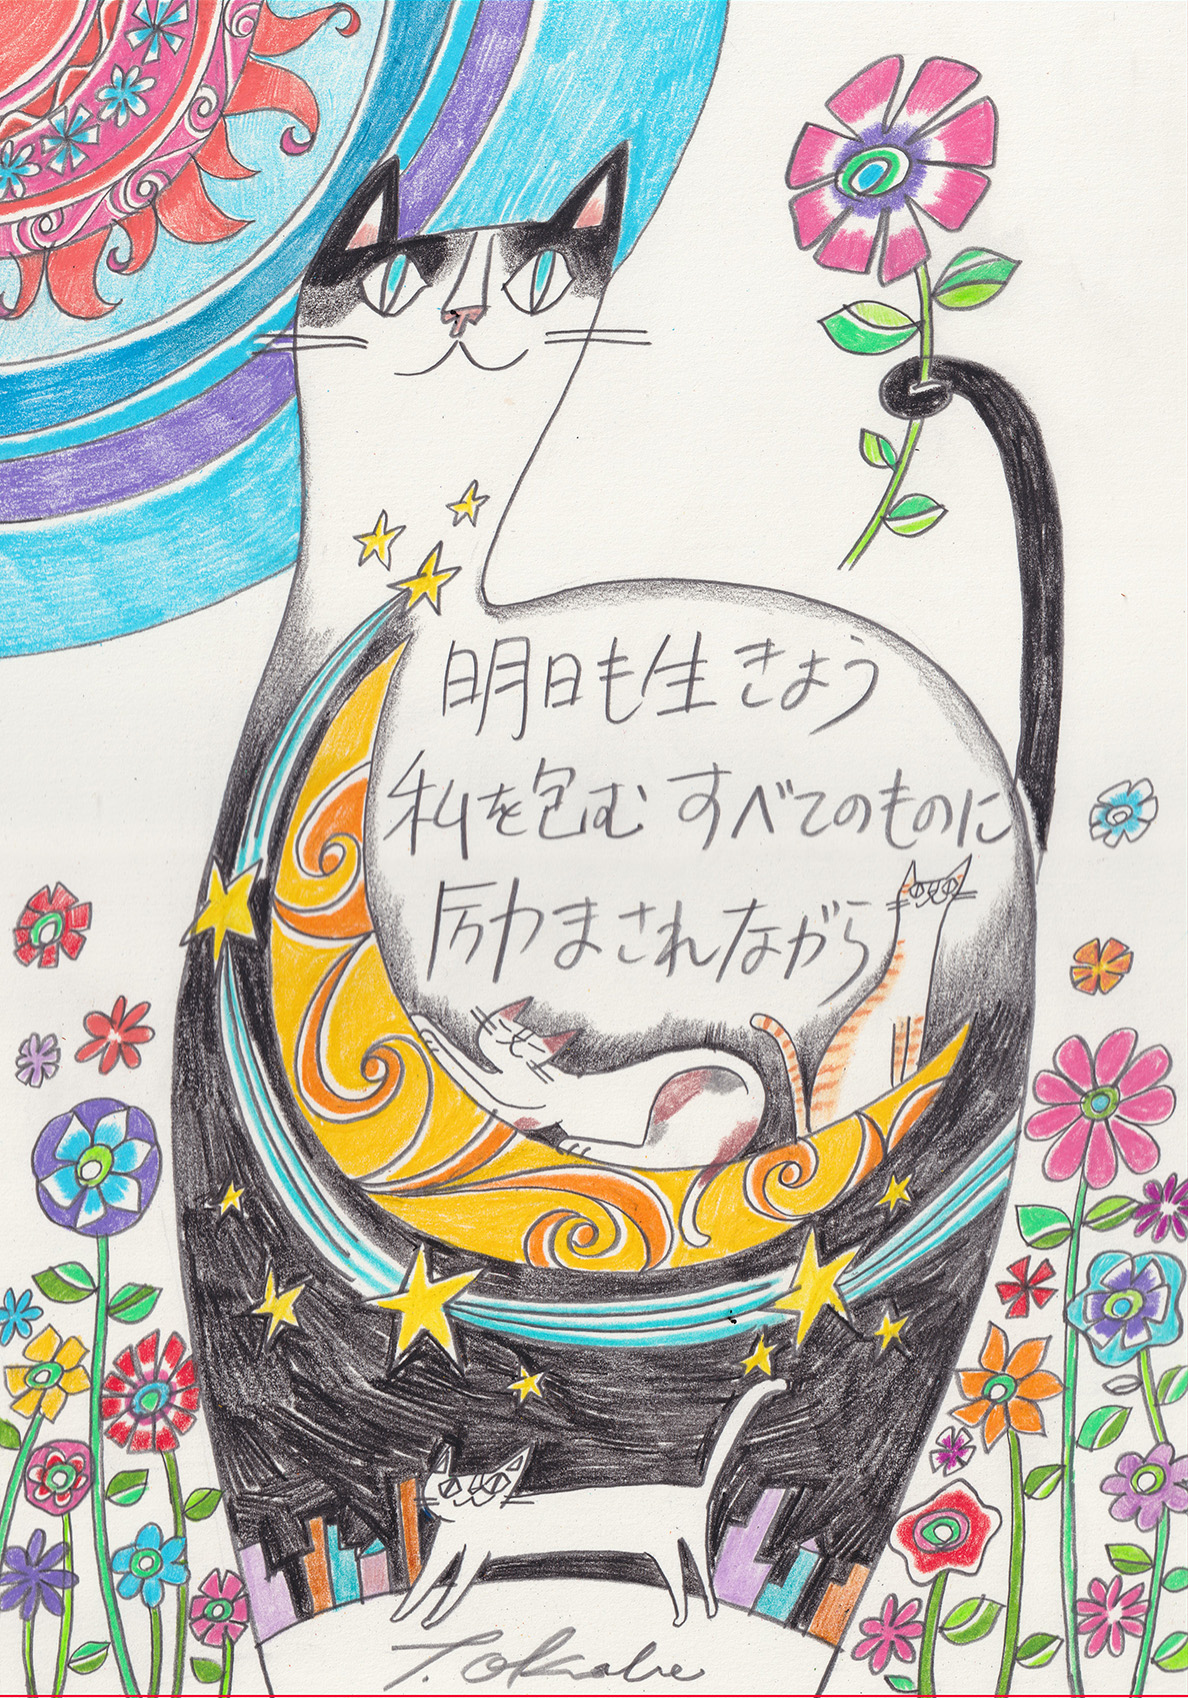 明日も生きよう
私を包む すべてのものに
励まされながら
T. Okabe